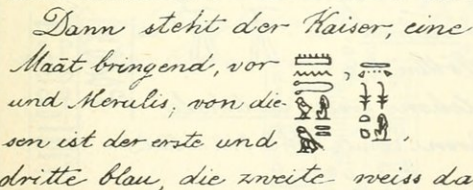 Dann steht der Kaiser, eine
Maāt bringend, vor
und Merulis; von die-
sen ist der erste und
dritte blau, die zweite weiss da